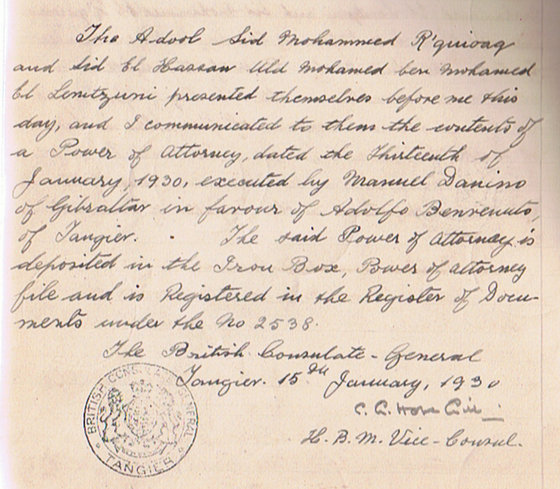 The Adool Sid Mohammed R'quioaq
and Sid El Hassan Uld Mohamed ben Mohamed
El presented themselves before me this
day, and I communicated to them the contents of
a Power of Attorney, dated the Thirteenth of
January 1930, executed by Manuel Danino
of Gibraltar in favour of Adolfo Benvenuto,
of Tangier. The said Power of Attorney is
deposited in the Iron Box, Power of attorney
file and is Registered in the Register of Docu-
ments under the No 2538.
The British Consulate-General
Tangier. 15th January, 1930
H. B. M. Vice-Consul.
BRITISH CONSULATE GENERAL
TANGIER